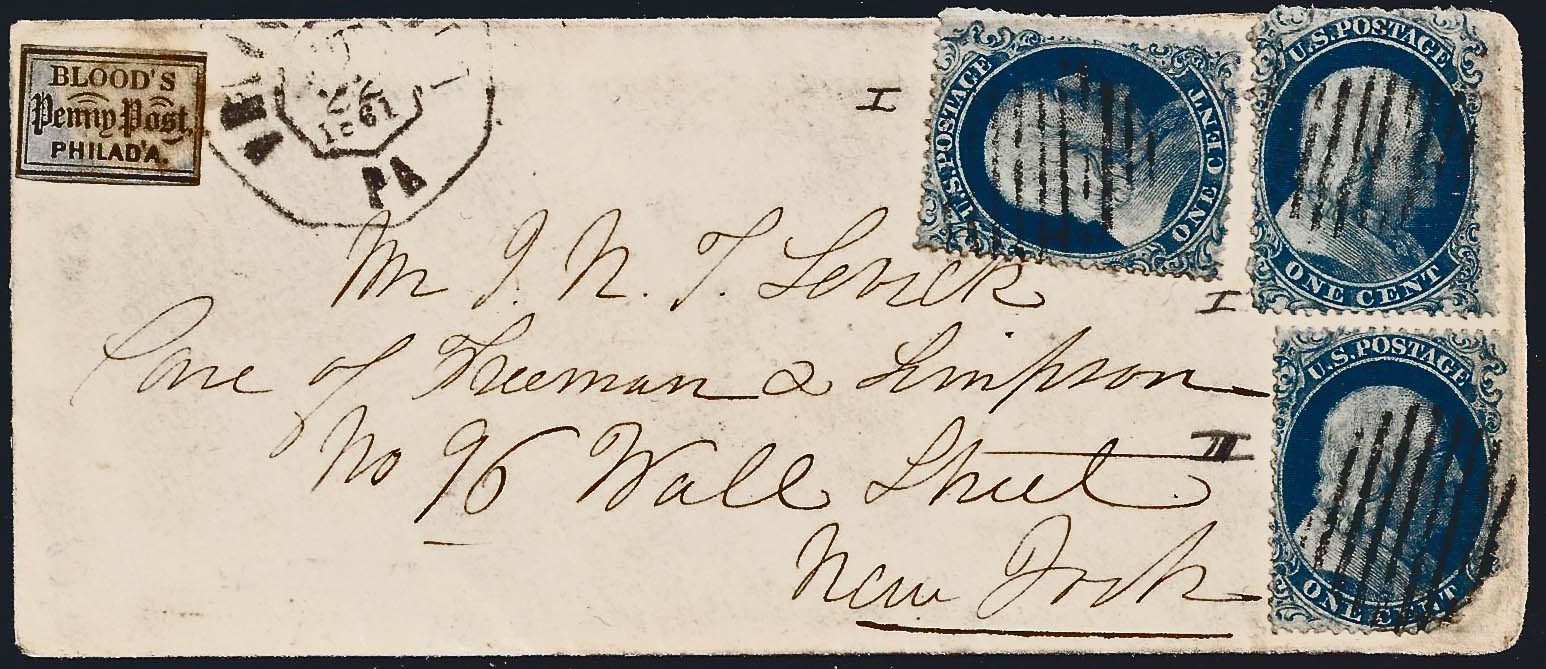 BLOOD'S
Penny Post,
PHILAD'A.
1861
PA
I
U.S. POSTAGE
ONE CENT
U.S. POSTAGE
ONE CENT
I
U.S. POSTAGE
ONE CENT
Mr J. N. T. Levick
Care of Freeman & Simpson
No 96 Wall Street
New York